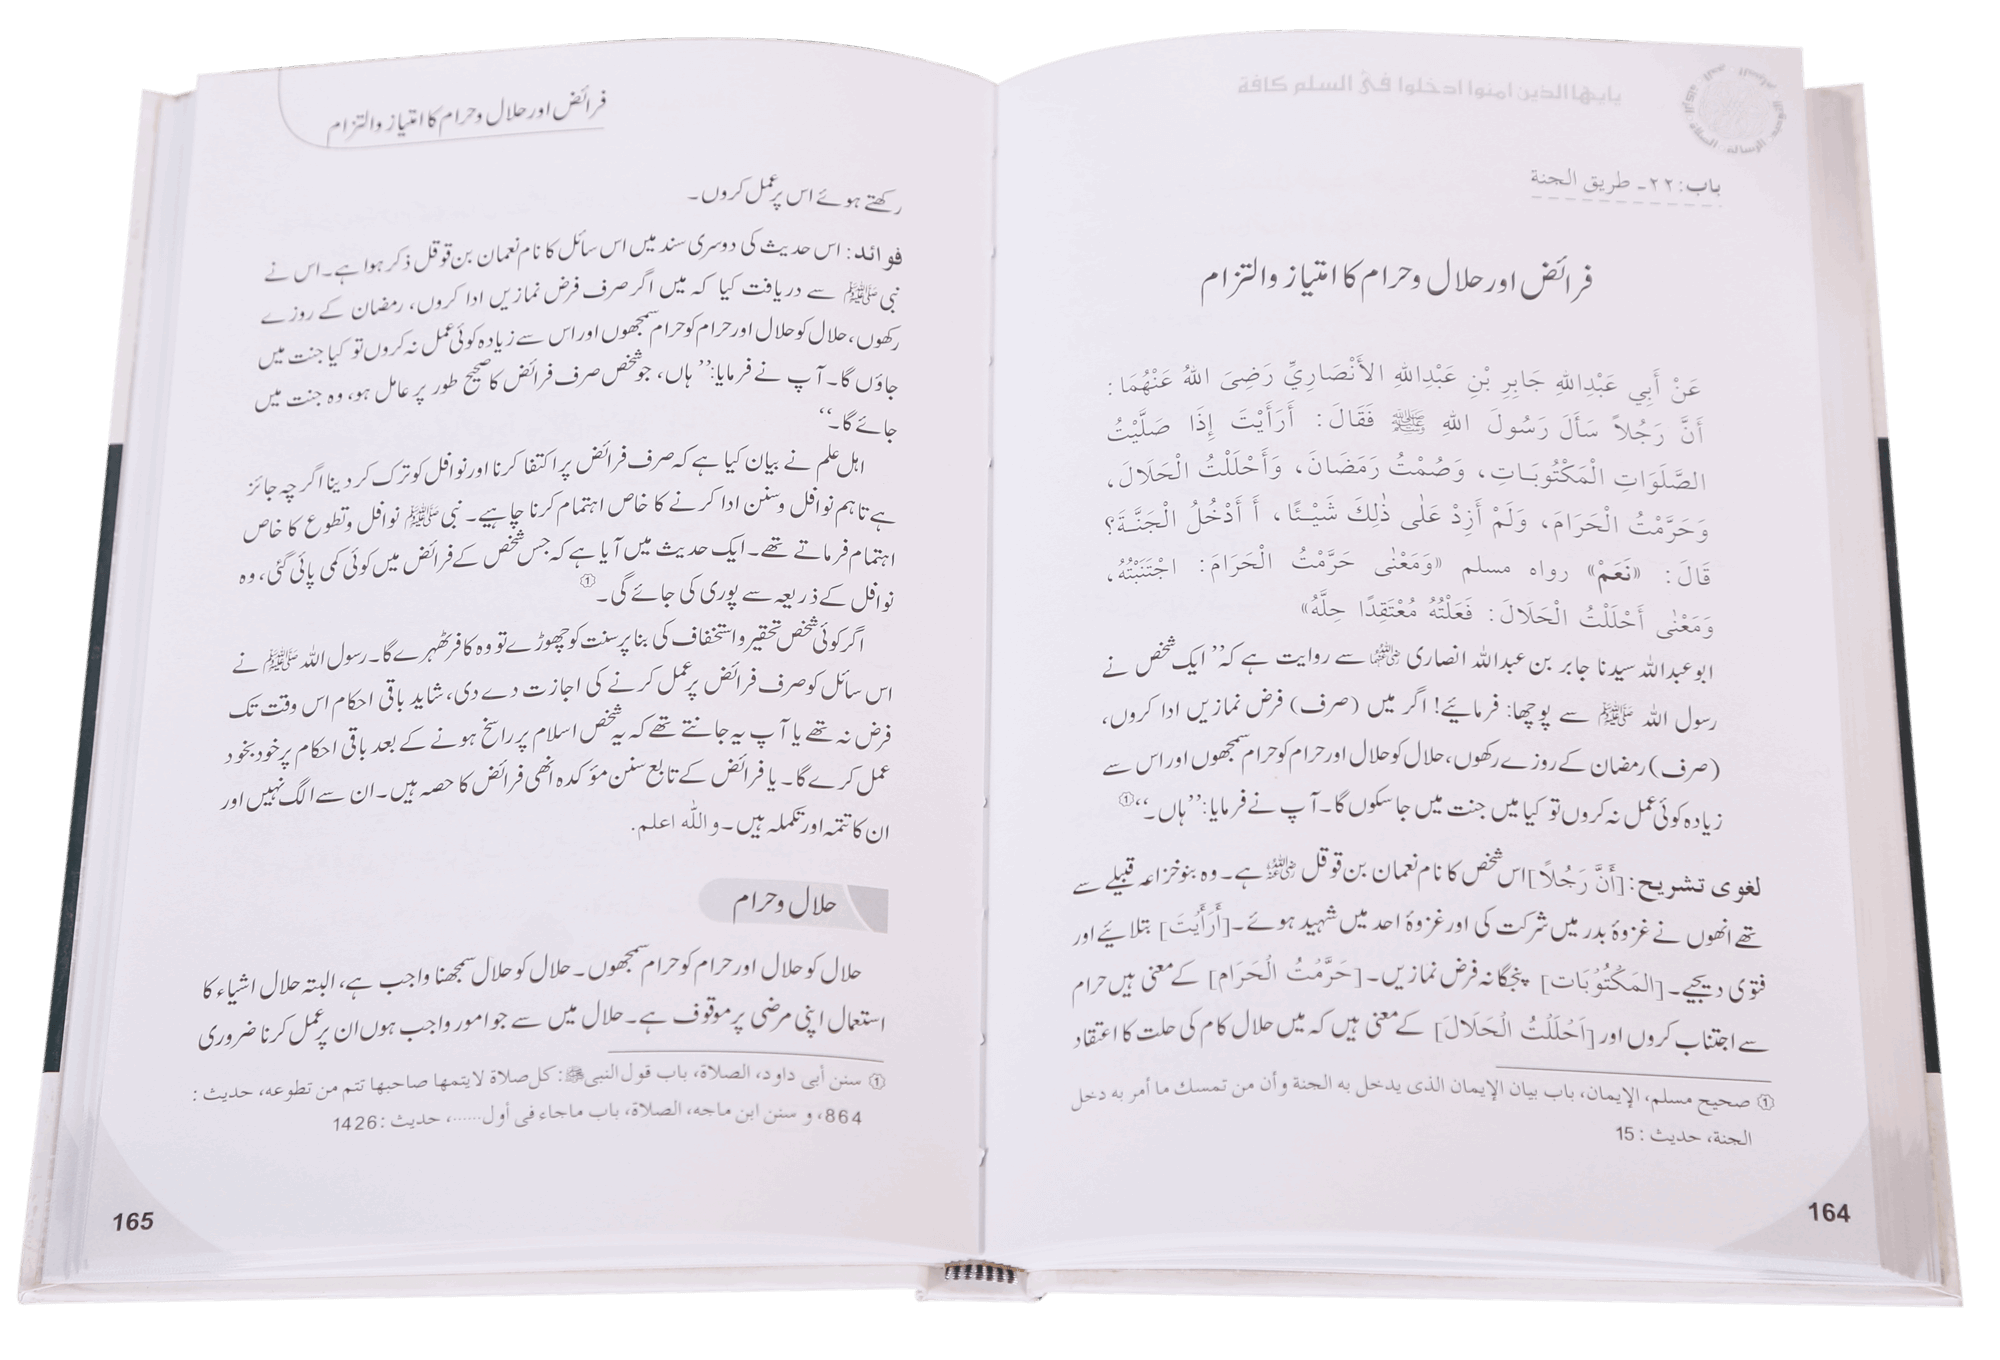 يايها الذين امنوا ادخلوا فى السلم كافة
باب: ٢٢۔ طريق الجنة
فرائض اور حلال وحرام کا امتیاز والتزام
عَنْ أَبِي عَبْدِاللهِ جَابِرِ بْنِ عَبْدِاللهِ الأَنْصَارِيِّ رَضِىَ اللهُ عَنْهُمَا:
أَنَّ رَجُلاً سَأَلَ رَسُولَ اللهِ ﷺ فَقَالَ: أَرَأَيْتَ إِذَا صَلَّيْتُ
الصَّلَوَاتِ الْمَكْتُوبَـاتِ، وَصُمْتُ رَمَضَانَ، وَأَحْلَلْتُ الْحَلَالَ،
وَحَرَّمْتُ الْحَرَامَ، وَلَمْ أَزِدْ عَلٰى ذٰلِكَ شَيْـئًا، أَ أَدْخُلُ الْجَنَّـةَ؟
قَالَ: «نَعَمْ» رواه مسلم «وَمَعْنٰى حَرَّمْتُ الْحَرَامَ: اجْتَنَبْتُهُ،
وَمَعْنٰى أَحْلَلْتُ الْحَلَالَ: فَعَلْتُهُ مُعْتَقِدًا حِلَّهُ»
ابوعبداللہ سیدنا جابر بن عبداللہ انصاری رضی اللہ عنہما سے روایت ہے کہ ’’ایک شخص نے
رسول اللہ ﷺ سے پوچھا: فرمائیے! اگر میں (صرف) فرض نمازیں ادا کروں،
(صرف) رمضان کے روزے رکھوں، حلال کو حلال اور حرام کو حرام سمجھوں اور اس سے
زیادہ کوئی عمل نہ کروں تو کیا میں جنت میں جا سکوں گا۔ آپ نے فرمایا: ’’ہاں۔‘‘①
لغوی تشریح: [أَنَّ رَجُلاً] اس شخص کا نام نعمان بن قوقل رضی اللہ عنہ ہے۔ وہ بنوخزاعہ قبیلے سے
تھے انھوں نے غزوۂ بدر میں شرکت کی اور غزوۂ احد میں شہید ہوئے۔ [أَرَأَيْتَ] بتلائیے اور
فتوی دیجیے۔ [المَكْتُوْبَات] پنجگانہ فرض نمازیں۔ [حَرَّمْتُ الْحَرَام] کے معنی ہیں حرام
سے اجتناب کروں اور [اَحْلَلْتُ الْحَلَالَ] کے معنی ہیں کہ میں حلال کام کی حلت کا اعتقاد
① صحيح مسلم، الإيمان، باب بيان الإيمان الذى يدخل به الجنة وأن من تمسك ما أمر به دخل
الجنة، حديث: 15
164
فرائض اور حلال وحرام کا امتیاز والتزام
رکھتے ہوئے اس پر عمل کروں۔
فوائد: اس حدیث کی دوسری سند میں اس سائل کا نام نعمان بن قوقل ذکر ہوا ہے۔ اس نے
نبی ﷺ سے دریافت کیا کہ میں اگر صرف فرض نمازیں ادا کروں، رمضان کے روزے
رکھوں، حلال کو حلال اور حرام کو حرام سمجھوں اور اس سے زیادہ کوئی عمل نہ کروں تو کیا جنت میں
جاؤں گا۔ آپ نے فرمایا: ’’ہاں، جو شخص صرف فرائض کا صحیح طور پر عامل ہو، وہ جنت میں
جائے گا۔‘‘
اہل علم نے بیان کیا ہے کہ صرف فرائض پر اکتفا کرنا اور نوافل کو ترک کر دینا اگرچہ جائز
ہے تاہم نوافل و سنن ادا کرنے کا خاص اہتمام کرنا چاہیے۔ نبی ﷺ نوافل وتطوع کا خاص
اہتمام فرماتے تھے۔ ایک حدیث میں آیا ہے کہ جس شخص کے فرائض میں کوئی کمی پائی گئی، وہ
نوافل کے ذریعہ سے پوری کی جائے گی۔①
اگر کوئی شخص تحقیر و استخفاف کی بنا پر سنت کو چھوڑے تو وہ کافر ٹھہرے گا۔ رسول اللہ ﷺ نے
اس سائل کو صرف فرائض پر عمل کرنے کی اجازت دے دی، شاید باقی احکام اس وقت تک
فرض نہ تھے یا آپ یہ جانتے تھے کہ یہ شخص اسلام پر راسخ ہونے کے بعد باقی احکام پر خود بخود
عمل کرے گا۔ یا فرائض کے تابع سنن مؤکدہ انھی فرائض کا حصہ ہیں۔ ان سے الگ نہیں اور
ان کا تتمہ اور تکملہ ہیں۔ واللّٰه اعلم.
حلال وحرام
حلال کو حلال اور حرام کو حرام سمجھوں۔ حلال کو حلال سمجھنا واجب ہے، البتہ حلال اشیاء کا
استعمال اپنی مرضی پر موقوف ہے۔ حلال میں سے جو امور واجب ہوں ان پر عمل کرنا ضروری
① سنن أبى داود، الصلاة، باب قول النبى ﷺ: كل صلاة لا يتمها صاحبها تتم من تطوعه، حديث:
864، و سنن ابن ماجه، الصلاة، باب ماجاء فى أول......، حديث: 1426
165